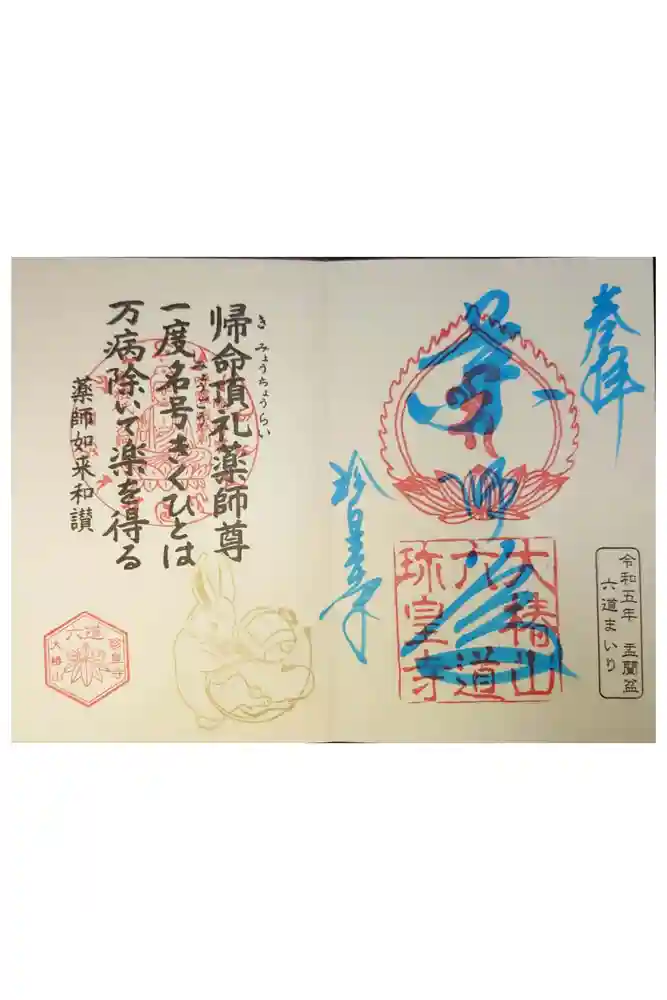 奉拝
令和五年 盂蘭盆
六道まいり
大椿山
六道
珍皇寺
珍皇寺
帰命頂礼薬師尊
き みょうちょうらい
一度名号きくひとは
みょうごう
万病除いて楽を得る
薬師如来和讃
六道
珍皇寺
大椿山